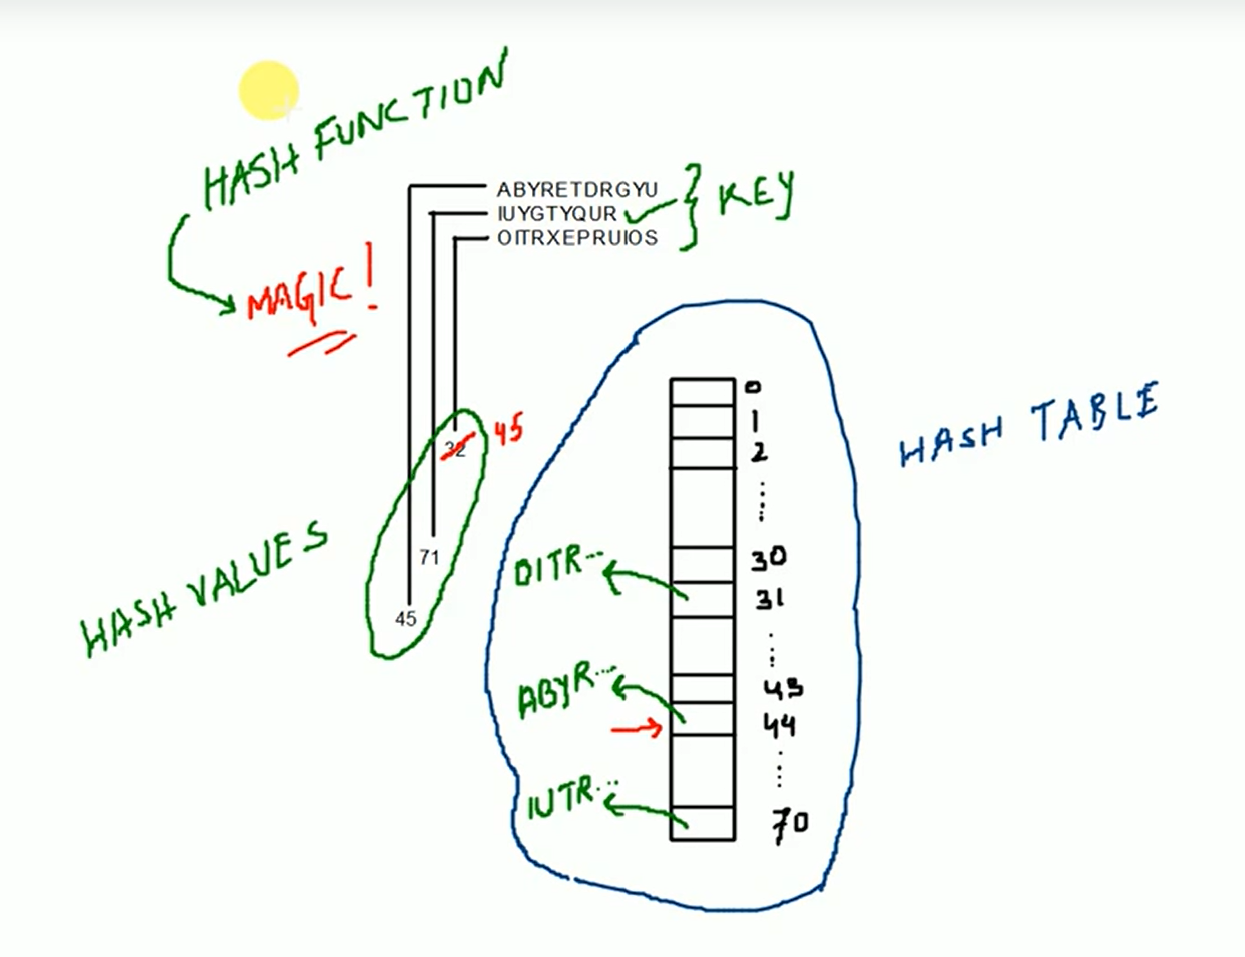 HASH FUNCTION
ABYRETDRGYU
IUYGTYQUR
OITRXEPRUIOS
KEY
MAGIC!
32 45
71
45
HASH VALUES
HASH TABLE
0
1
2
30
OITR...
31
43
ABYR...
44
IUTR...
70